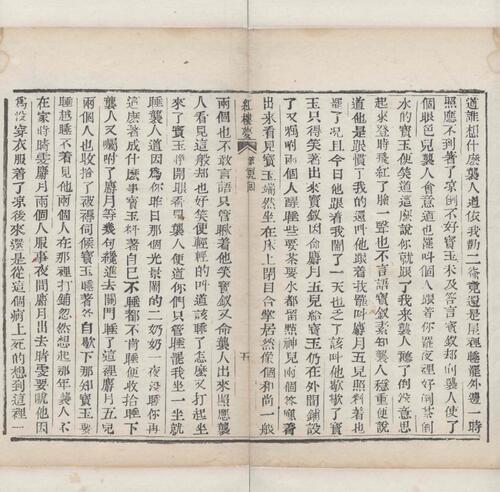 道誰想什麽襲人道依我勸二爺竟還是屋裡睡罷外邊一時
照應不到著了凉倒不好寶玉未及答言寶釵却向襲人使了
個眼色兒襲人會意道也罷叫個人跟著你罷夜裡好倒茶倒
水的寶玉便笑道這麽說你就跟了我來襲人聽了倒沒意思
起來登時飛紅了臉一聲也不言語寶釵素知襲人穩重便說
道他是跟慣了我的還叫他跟着我罷叫麝月五兒照料着也
罷了況且今日他跟着我鬧了一天也乏了該叫他歇歇了寶
玉只得笑著出來寶釵因命麝月五兒給寶玉仍在外間鋪設
了又嘱咐兩個人醒睡些要茶要水都留點神兒兩個答應着
出來看見寶玉端然坐在床上閉目合掌居然像個和尚一般
紅樓夢
五
兩個也不敢言語只管瞅着他笑寶釵又命襲人出來照應襲
人看見這般却也好笑便輕輕的叫道該睡了怎麽又打起坐
來了寶玉睜開眼看見襲人便道你們只管睡罷我坐一坐就
睡襲人道因爲你昨日那個光景鬧的二奶奶一夜沒睡你再
這麽著成什麽事寶玉料著自己不睡都不肯睡便收拾睡下
襲人又囑咐了麝月等幾句纔進去關門睡了這裡麝月五兒
兩個人也收拾了被褥伺候寶玉睡著各自歇下那知寶玉要
睡越睡不着見他兩個人在那裡打鋪忽然想起那年襲人不
在家時晴雯麝月兩個人服事夜間麝月出去晴雯要唬他因
爲沒穿衣服着了凉後來還是從這個病上死的想到這裡一